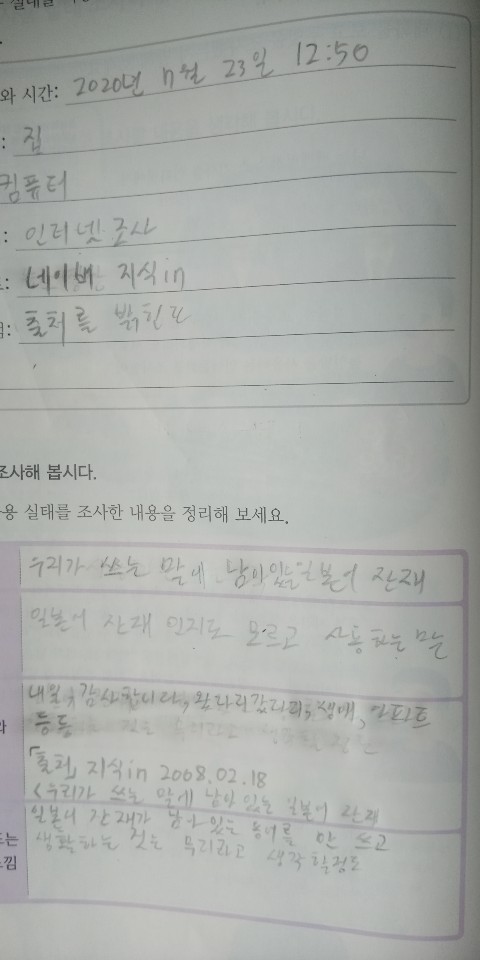 와 시간: 2020년 7월 23일 12:50
: 집
컴퓨터
: 인터넷 조사
: 네이버 지식in
: 출처를 밝힌다
조사해 봅시다.
용 실태를 조사한 내용을 정리해 보세요.
우리가 쓰는 말에 남아있는 일본어 잔재
일본어 잔재 인지도 모르고 사용하는 마는
내일, 감사합니다, 왔다리갔다리, 생애, 아파트
와 등등
「출처」 지식in 2008.02.18
<우리가 쓰는 말에 남아 있는 일본어 잔재
일본어 잔재가 남아 있는 용어를 안 쓰고
또는 생활하는 것은 무리라고 생각 할정도
느낌